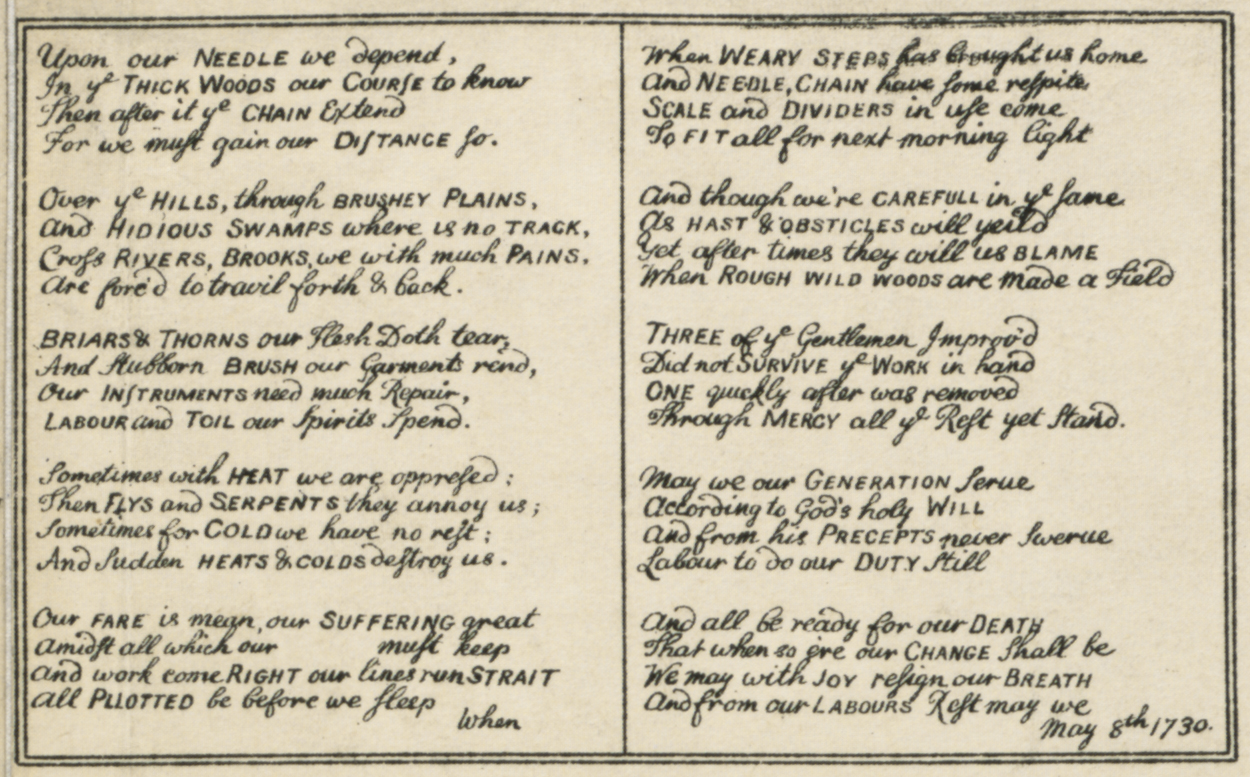 Upon our NEEDLE we depend,
In yᵉ THICK WOODS our COURſE to know
Then after it yᵉ CHAIN Extend
For we muſt gain our DIſTANCE ſo.
Over yᵉ HILLS, through BRUSHEY PLAINS,
And HIDIOUS SWAMPS where is no TRACK,
Croſs RIVERS, BROOKS, we with much PAINS.
Are forc'd to travil forth & back.
BRIARS & THORNS our Flesh Doth tear,
And Stubborn BRUSH our Garments rend,
Our INſTRUMENTS need much Repair,
LABOUR and TOIL our Spirits Spend.
Sometimes with HEAT we are oppreſed:
Then FLYS and SERPENTS they annoy us;
Sometimes for COLD we have no reſt;
And Sudden HEATS & COLDS deſtroy us.
Our FARE is mean, our SUFFERING great
Amidſt all which our muſt keep
And work come RIGHT our lines run STRAIT
All PLLOTTED be before we ſleep
When
When WEARY STEPS has brought us home
And NEEDLE, CHAIN have ſome reſpite
SCALE and DIVIDERS in uſe come
To FIT all for next morning light
And though we're CAREFULL in yᵉ ſame
As HAST & OBSTICLES will yeild
Yet after times they will us BLAME
When ROUGH WILD WOODS are made a Field
THREE of yᵉ Gentlemen Improv'd
Did not SURVIVE yᵉ WORK in hand
ONE quickly after was removed
Through MERCY all yᵉ Reſt yet Stand.
May we our GENERATION Serue
According to God's holy WILL
And from his PRECEPTS never Swerue
Labour to do our DUTY Still
And all be ready for our DEATH
That when so ere our CHANGE Shall be
We may with JOY reſign our BREATH
And from our LABOURS Reſt may we
May 8ᵗʰ 1730.